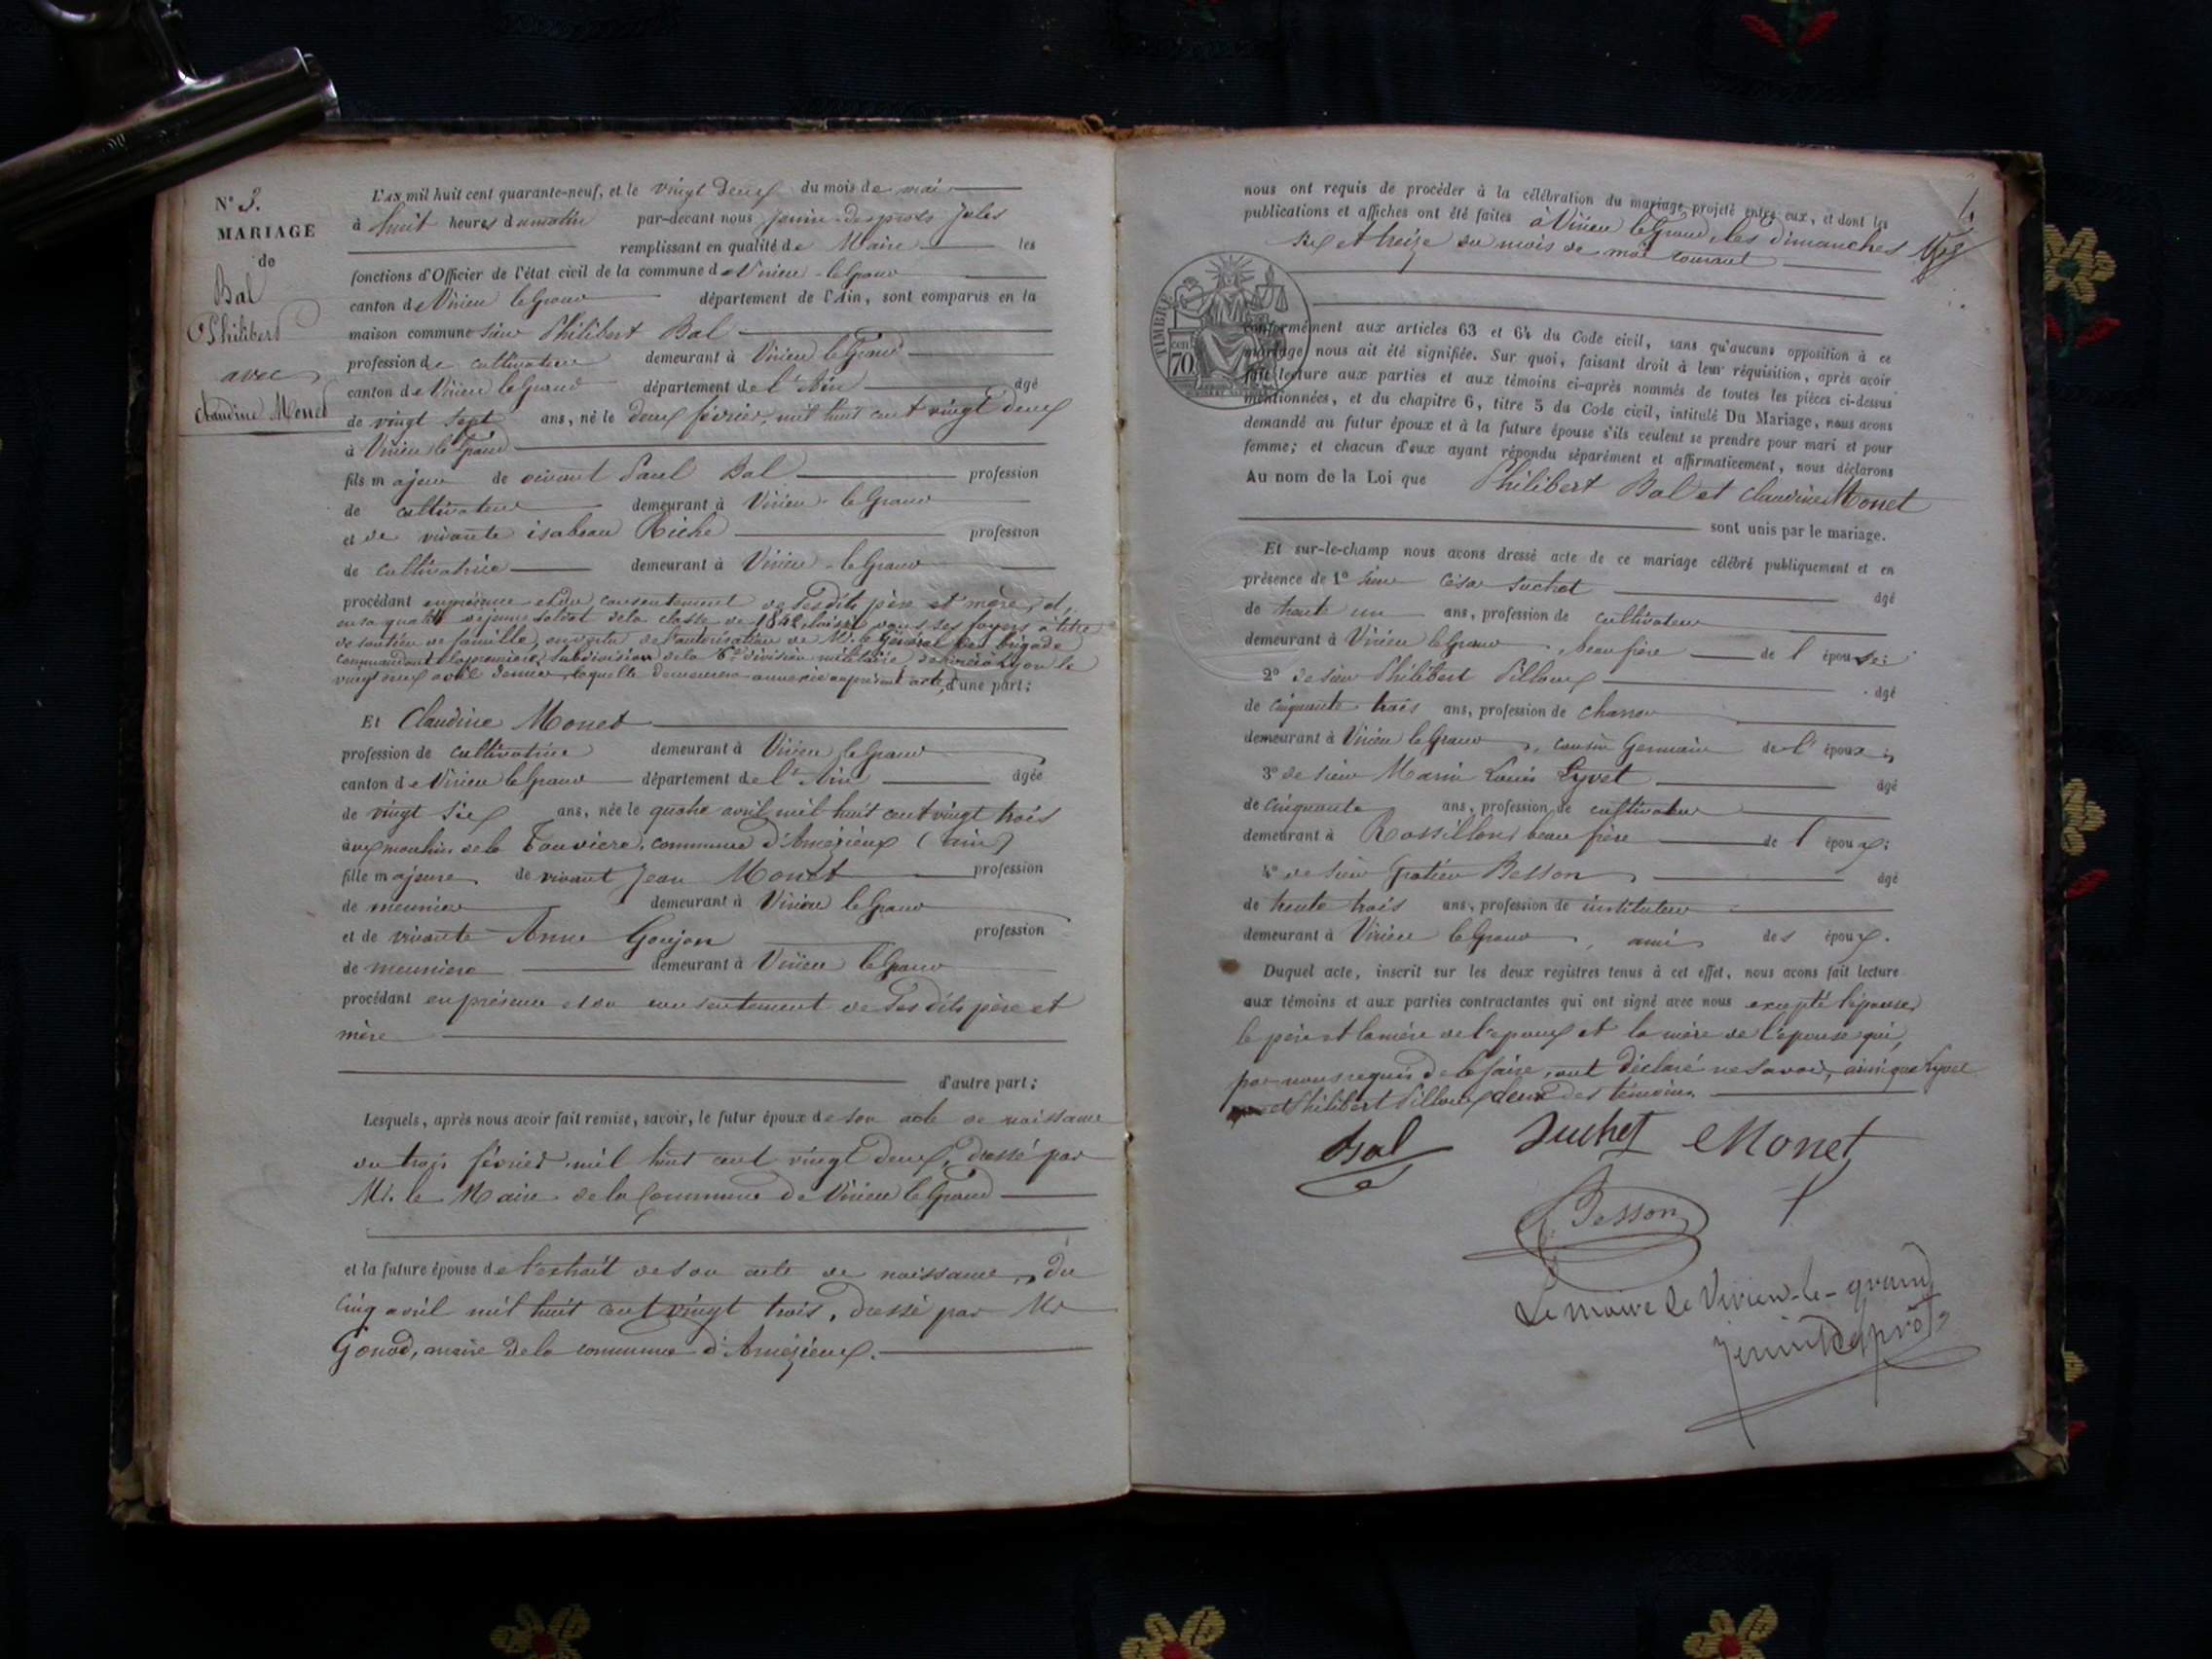 N° 3.
MARIAGE
de
Bal
Philibert
avec
Claudine Monet
L'AN mil huit cent quarante-neuf, et le vingt deux du mois de mai
à huit heures du matin par-devant nous Jenin-desprots Jules
remplissant en qualité de Maire les
fonctions d'Officier de l'état civil de la commune de Virieu-le Grand
canton de Virieu le Grand département de l'Ain, sont comparus en la
maison commune sieur Philibert Bal
profession de cultivateur demeurant à Virieu le Grand
canton de Virieu le Grand département de l'Ain âgé
de vingt sept ans, né le deux février, mil huit cent vingt deux
à Virieu le Grand
fils majeur de vivant Paul Bal profession
de cultivateur demeurant à Virieu-le Grand
et de vivante isabeau Riche profession
de cultivatrice demeurant à Virieu-le Grand
procédant en présence et du consentement de ses dits père et mère, et,
en sa qualité de jeune soldat de la classe de 1842, laissé dans ses foyers à titre
de soutien de famille, en vertu de l'autorisation de Mr. le Général de brigade
commandant la première subdivision de la 6e division militaire, délivrée à Lyon le
vingt avril dernier, laquelle demeurera annexée au présent acte, d'une part;
Et Claudine Monet
profession de cultivatrice demeurant à Virieu le Grand
canton de Virieu le Grand département de l'Ain âgée
de vingt six ans, née le quatre avril mil huit cent vingt trois
aux moulins de la Touvière, commune d'Ameyzieux (ain)
fille majeure de vivant Jean Monet profession
de meunier demeurant à Virieu le Grand
et de vivante Anne Goujon profession
de meunière demeurant à Virieu le Grand
procédant en présence et du consentement de ses dits père et
mère
d'autre part;
Lesquels, après nous avoir fait remise, savoir, le futur époux de son acte de naissance
du trois février mil huit cent vingt deux, dressé par
Mr. le Maire de la Commune de Virieu le Grand
et la future épouse de l'extrait de son acte de naissance, du
cinq avril mil huit cent vingt trois, dressé par Mr
Gonod, maire de la commune d'Ameyzieux.
nous ont requis de procéder à la célébration du mariage projeté entre eux, et dont les
publications et affiches ont été faites à Virieu le Grand, les dimanches
six et treize du mois de mai courant
TIMBRE
cen
70.
conformément aux articles 63 et 64 du Code civil, sans qu'aucune opposition à ce
mariage nous ait été signifiée. Sur quoi, faisant droit à leur réquisition, après avoir
fait lecture aux parties et aux témoins ci-après nommés de toutes les pièces ci-dessus
mentionnées, et du chapitre 6, titre 5 du Code civil, intitulé Du Mariage, nous avons
demandé au futur époux et à la future épouse s'ils veulent se prendre pour mari et pour
femme; et chacun d'eux ayant répondu séparément et affirmativement, nous déclarons
Au nom de la Loi que Philibert Bal et Claudine Monet
sont unis par le mariage.
Et sur-le-champ nous avons dressé acte de ce mariage célébré publiquement et en
présence de 1° sieur César Suchet âgé
de trente un ans, profession de cultivateur
demeurant à Virieu le Grand, beau frère de l'épouse;
2° de sieur Philibert Pilloux âgé
de cinquante trois ans, profession de charron
demeurant à Virieu le Grand, cousin Germain de l'époux;
3° de sieur Marin Louis Lyvet âgé
de cinquante ans, profession de cultivateur
demeurant à Rossillon, beau frère de l'époux;
4° de sieur Gratien Besson âgé
de trente trois ans, profession de instituteur
demeurant à Virieu le Grand, ami des époux.
Duquel acte, inscrit sur les deux registres tenus à cet effet, nous avons fait lecture
aux témoins et aux parties contractantes qui ont signé avec nous excepté l'épouse,
le père et la mère de l'époux et la mère de l'épouse qui,
par nous requis de le faire, ont déclaré ne savoir, ainsi que Lyvet
et Philibert Pilloux deux des témoins.
Bal Suchet Monet
Besson
Le maire de Virieu-le-grand
Jenin Desprots